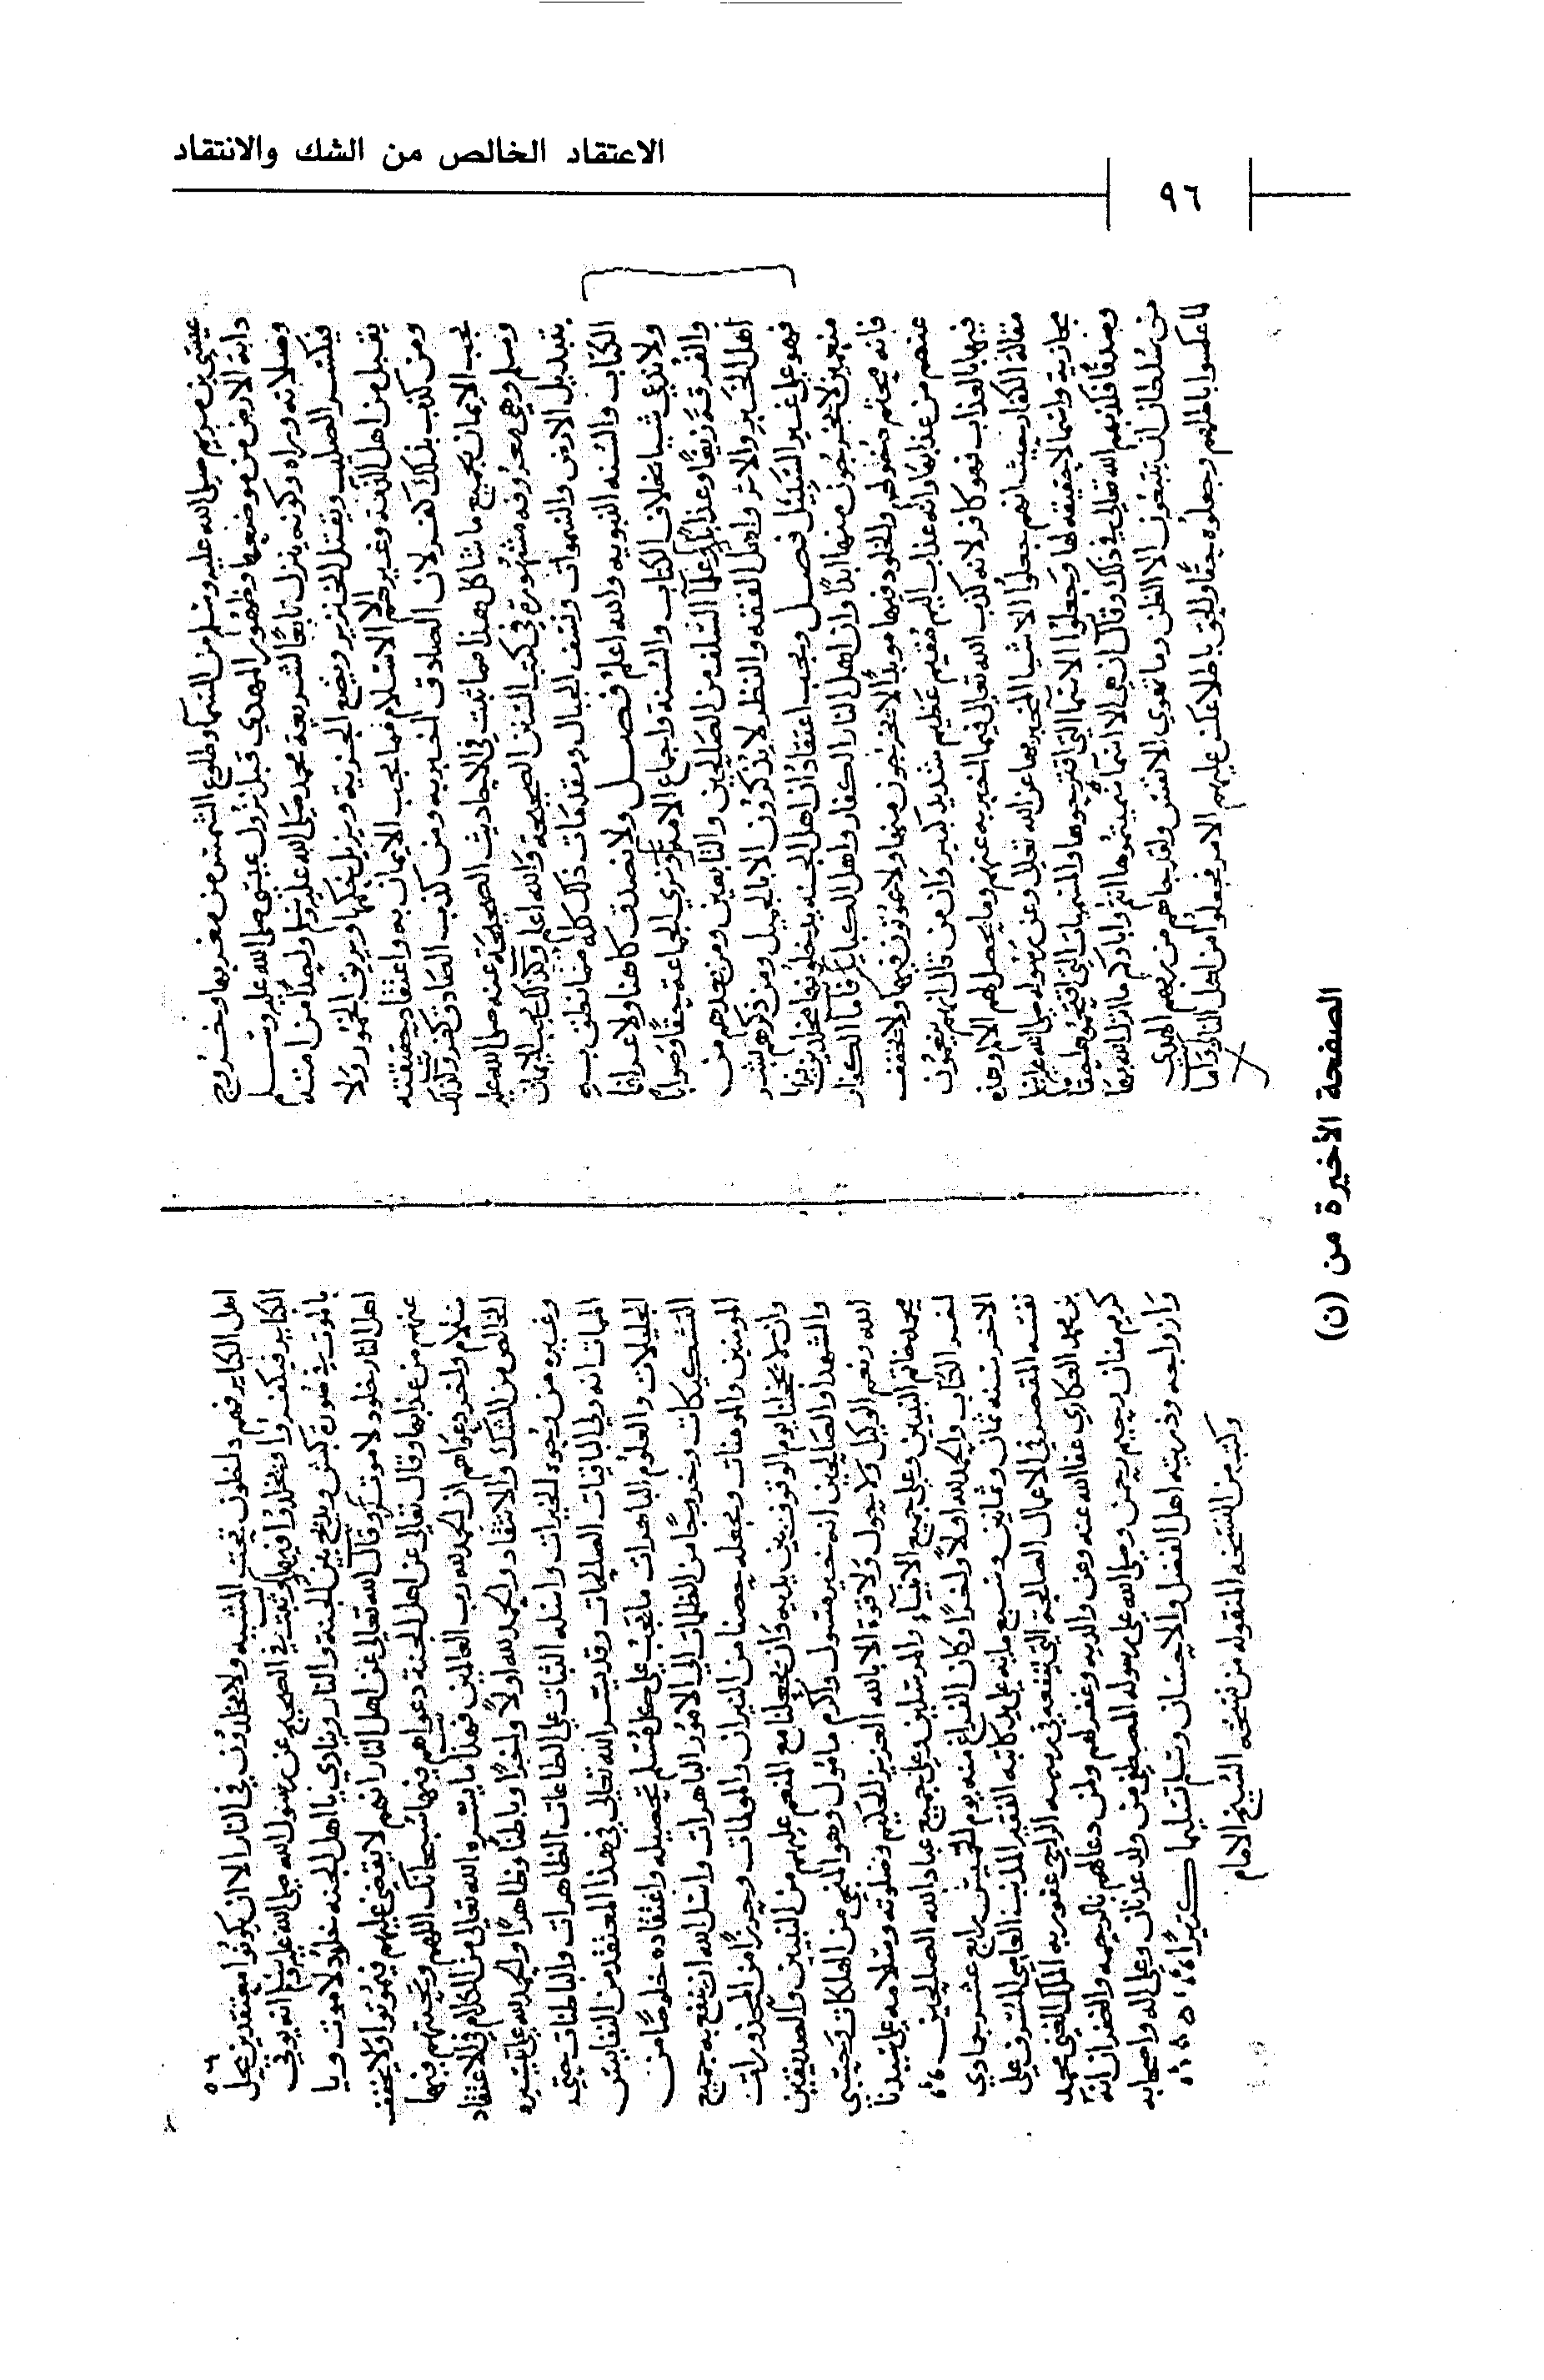 الاعتقاد الخالص من الشك والانتقاد
٩٦
عيسى بن مريم صلى الله عليه وسلم من السماء وطلوع الشمس من مغربها وخروج
دابة الارض من موضعها وظهور المهدي قبل نزول عيسى صلى الله عليه وسلم
وصلاته وراه وكونه ينزل تابعًا لشريعة محمد صلى الله عليه وسلم من امته
فيكسر الصليب ويقتل الخنزير ويضع الجزية ويريق الخمور ولا
يقبل من اهل الذمة وغيرهم الا الاسلام مما يجب الايمان به واعتقاد حقيقته
ومن كذب بذلك كفر لان الصادق اخبر به ومن كذب الصادق كفر وكذلك
يجب الايمان بجميع ما شاكل هذا مما ثبت في الاحاديث الصحيحة عنه صلى الله عليه
وسلم وهي معروفة مشهورة في كتب السنن الصحيحة والله اعلم وكذلك يجب الايمان
بتبديل الارض والسموات ونسف الجبال ومقدمات ذلك كله مما نطق به
الكتاب والسنه النبويه والله اعلم فصل ولا نصدق كاهنا ولا عرافا
ولا ندعي شيا بخلاف الكتاب والسنة واجماع الامة ونري الجماعة حقًا وصوابًا
والفرقة زيغًا وعذابًا وعلما السلف من الصالحين والتابعين ومن بعدهم من
اهل الخبر والاثر واهل الفقه والنظر لا يذكرون الا بالجميل ومن ذكرهم بشر
فهو على غير السبيل فصل ويجب اعتقاد ان اهل الجنه يدخلونها مخلدين فيها
منعمين لا يخرجون منها ابدًا وان اهل النار الكفار واهل الكباير فاما الكفار
فانه محتم دخولهم والخلود فيها موبدًا لا يخرجون منها ولا يموتون فيها ولا يخفف
عنهم من عذابها وانه عذاب اليم مقيم عظيم شديد كبير وان من قال انهم ينعمون
فيها بالعذاب فهو كافر لانه كذب الله تعالى فيما اخبر به عنهم وما يحصل لهم الالام وهذه
مقالة الكفار حيث انهم جعلوا الاشيا المخبر بها عن الله تعالى وعن رسوله صلى الله عليه وسلم
مجازية وانها لا حقيقه لها وجعلوا الاسما التي اقترحوها والمسميات التي اقتحموها حقًا
وصدقًا فكذبهم الله تعالى في ذلك وقال ان هي الا اسما سميتموها انتم واباوكم ما انزل الله بها
من سلطان ان يتبعون الا الظن وما تهوي الانفس ولقد جاهم من ربهم الهدي
لما عكسوا باطلهم وجعلوه حقًا والحق باطلا عكس عليهم الامر فجعلوا من اهل النار واما
اهل الكباير فهم داخلون تحت المشيه ولا يخلدون في النار الا ان يكونوا معتقدين حل
الكباير فيكفروا ويخلدوا فيها وثبت في الصحيح عن رسول الله صلى الله عليه وسلم انه يوتي
بالموت في صورة كبش ويذبح بين الجنة والنار وينادي يا اهل الجنه خلود لا موت ويا
اهل النار خلود لا موت وقال الله تعالى عن اهل النار انهم لا يقضى عليهم فيموتوا ولا يخفف
عنهم من عذابها وقال تعالى عن اهل الجنة دعواهم فيها سبحانك اللهم وتحيتهم فيها
سلام واخر دعواهم ان الحمد لله رب العالمين فهذا ما يسره الله تعالى من الكلام في الاعتقاد
الخالص من الشك والانتقاد والحمد لله اولًا واخرًا وباطنًا وظاهرًا والحمد لله على تيسيره
وغيره من وجوه الخيرات واسله الثبات على الطاعات الظاهرات والباطنات حتى
الممات انه ولي الباقيات الصالحات وقد يسر الله تعالى في هذا المعتقد من النفايس
الجليلات والعلوم الباهرات ما يجب على كل مسلم تحصيله واعتقاده خلاصًا من
التشكيكات وخروجًا من الظلمات الى الامور الباهرات واسل الله ان ينفع به جميع
المومنين والمومنات ويجعله حصنا من النيران والمولمات وحرزًا من المحذورات
وان لا يخزنا يوم الوقوف بين يديه وان يجعلنا مع المنعم عليهم من النبيين والصديقين
والشهدا والصالحين انه خير مسول واكرم مامول وهو المنجي من الهلكات وحسبي
الله ونعم الوكيل ولا حول ولا قوة الا بالله العزيز الحكيم وصلوته وسلامه على سيدنا
محمد خاتم النبيين وعلى جميع الانبياء والمرسلين وعلى جميع عباد الله الصالحين
اخر الكتاب والحمد لله اولًا واخرًا وكان الفراغ منه يوم الخميس رابع عشر جمادي
الاخر سنه ثمان وثمانين وسبع مايه على يد كاتبه الفقير المذنب العاصي المسرف على
نفسه المقصر في الاعمال الصالحة التي تنفعه في رمسه الراجي عفو ربه الملك الغني محمد
بن محمد العكاري عفا الله عنه وعن والديه وغفر لهم ولمن دعا لهم بالرحمه والغفران انه
كريم منان رحيم رحمن وصلى الله على رسوله المصطفى من ولد عدنان وعلى اله واصحابه
وازواجه وذريته اهل الفضل والاحسان وسلم تسليما كثيرًا
وكتبه من النسخه المنقوله من نسخه الشيخ الامام
الصفحة الأخيرة من (ن)